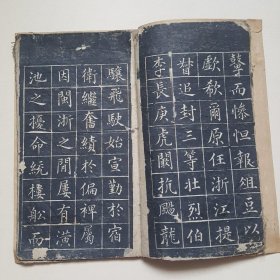 鼙而慘怛報俎豆以
歔欷爾原任浙江提
督追封三等壯烈伯
李長庚虎闞抗颺龍
驤飛駛始宣勤於宿
衛繼奮績於偏裨屬
因閩浙之閒屢有潢
池之擾命統樓船而